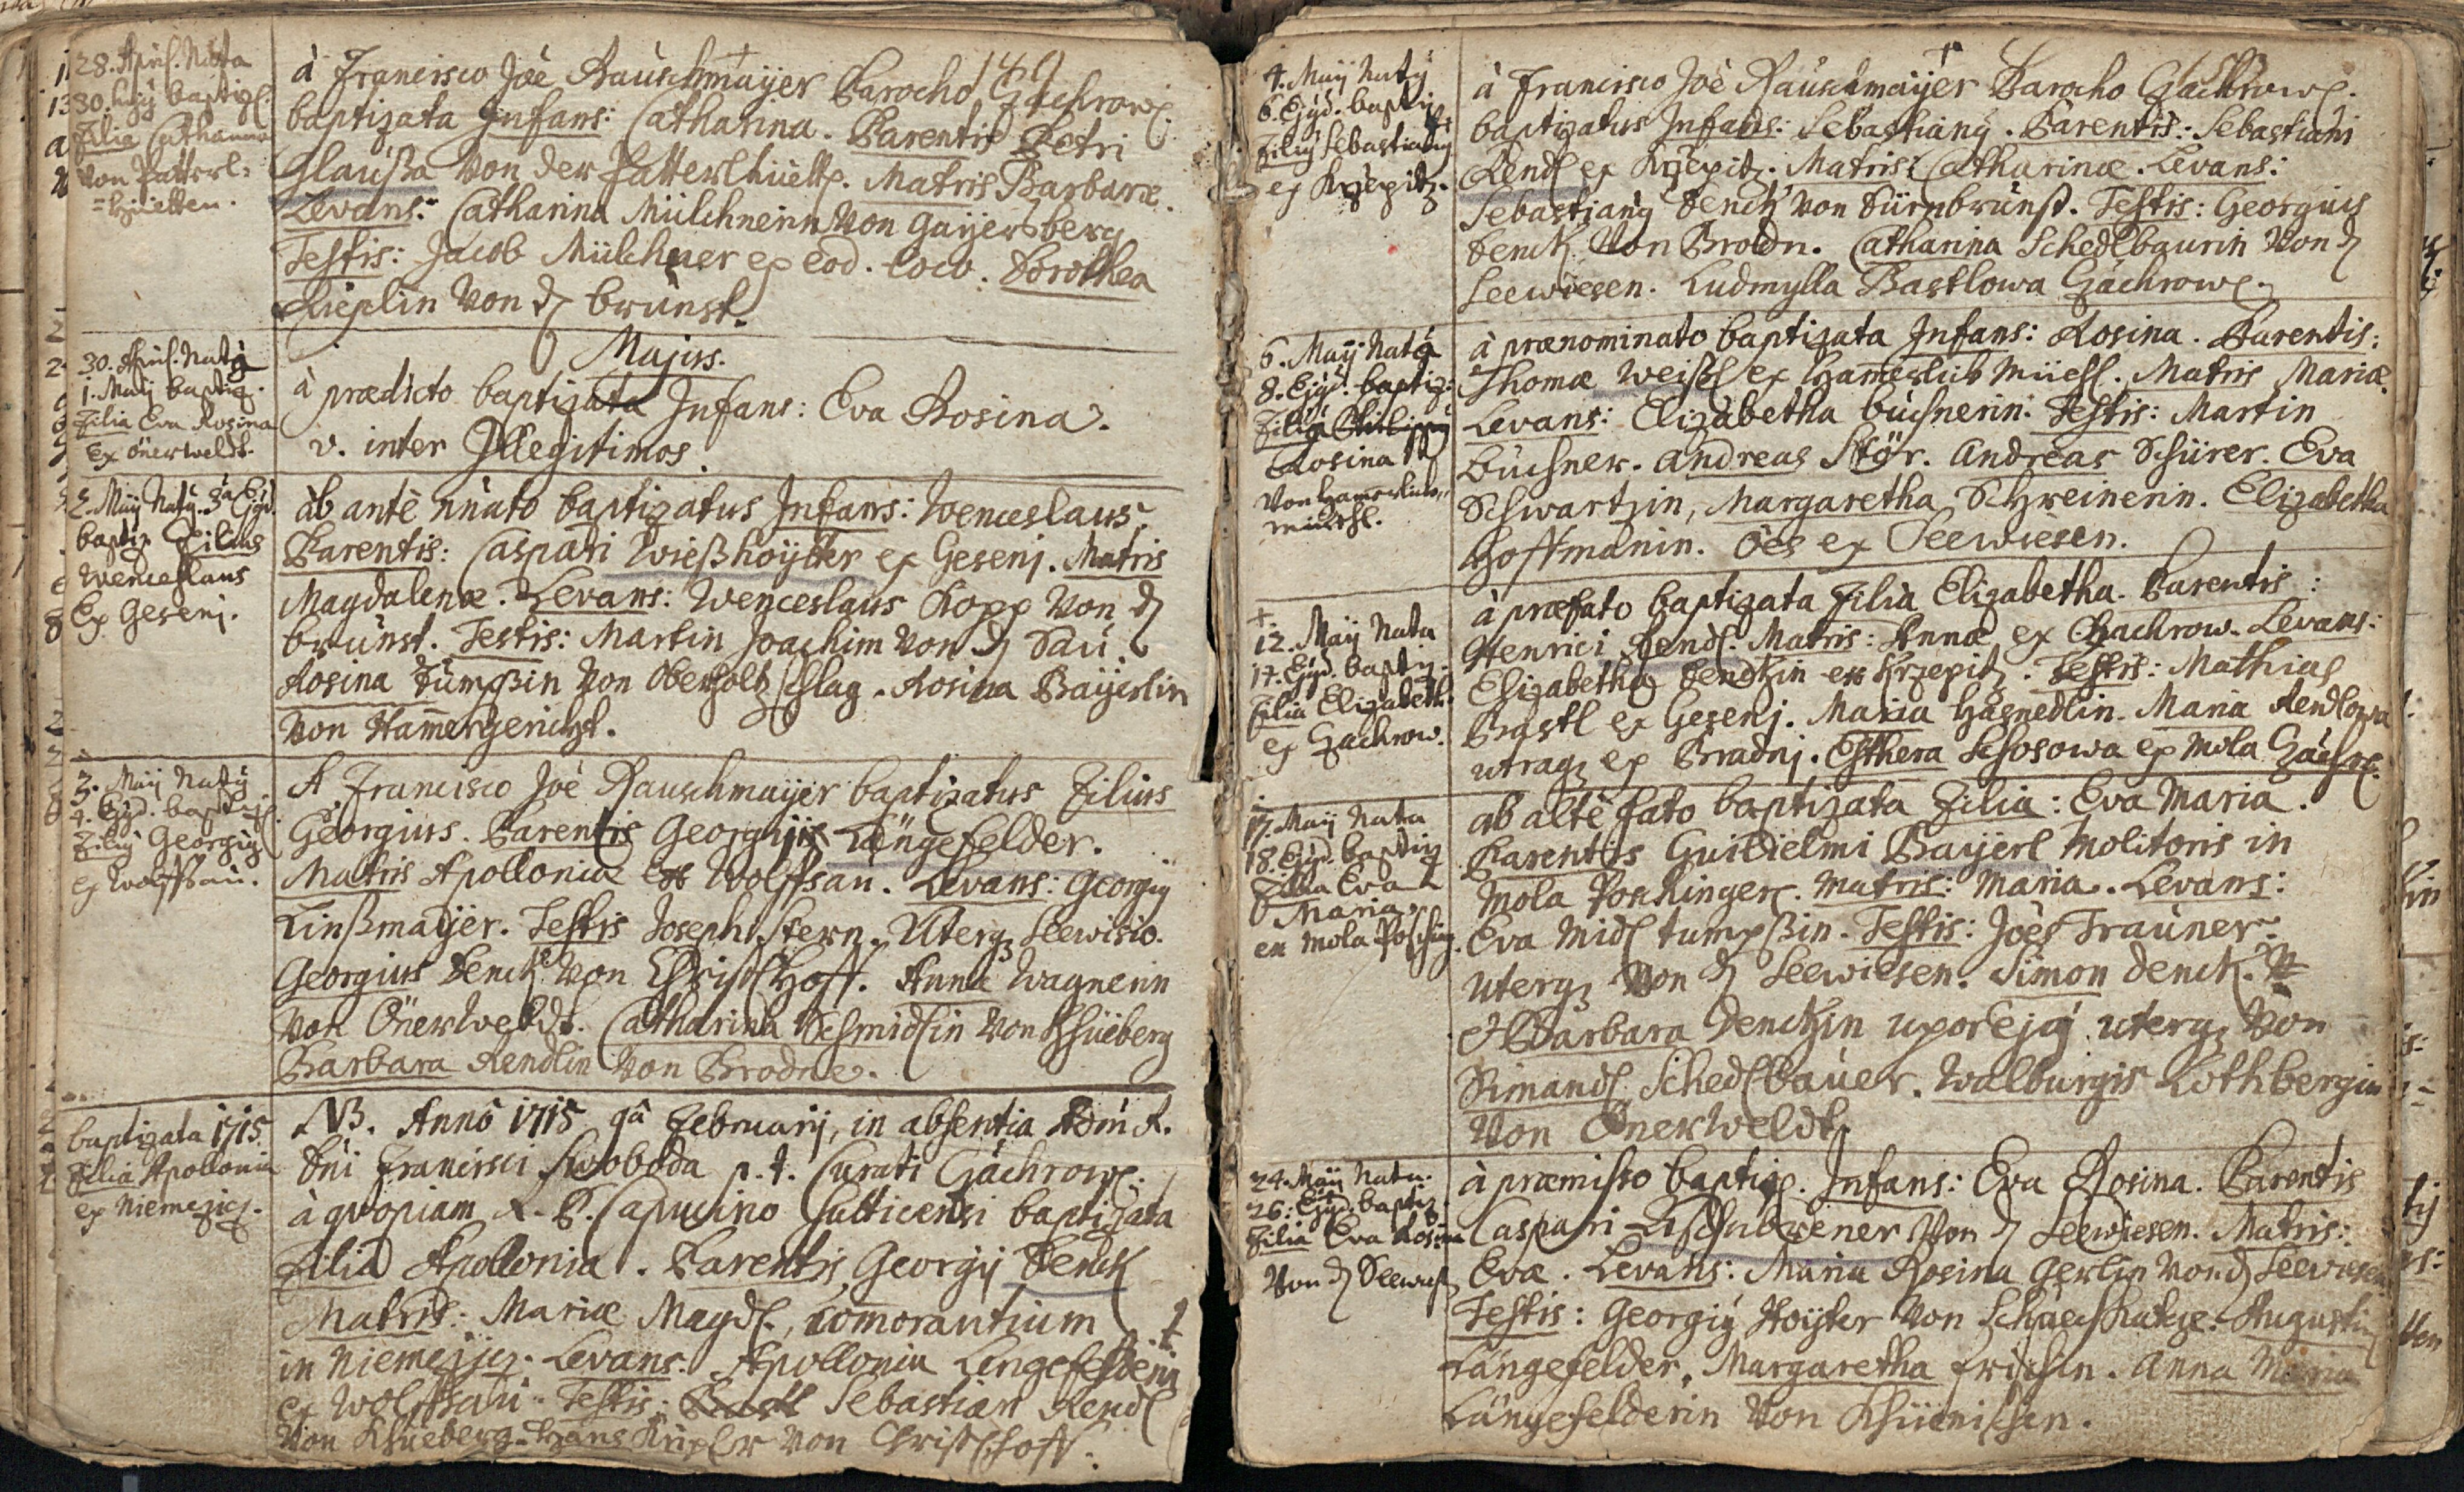 149
28. April. Nata
30. huj9 baptiz.
Filia Catharina
von Patterl=
=hüetten.
à Francisco Joē Rauschmayer Parocho Gáchrow.
baptizata Infans: Catharina. Parentis Petri
Glaußa von der Patterlhüett. Matris Barbaræ.
Levans: Catharina Mülchnerin von Gayersberg
Testis: Jacob Mülchner ex eod. loco. Dorothea
von d brunst.
Majus.
30. April. Nata
1. Maij baptiz.
Filia Eva Rosina
ex önerweldt.
à prædicto baptizata Infans: Eva Rosina.
v. inter Illegitimos.
2. Maij Naty. 3a Ejgd.
baptiz Filius
Wenceslaus
Ex Gesenj.
ab antè nùato baptizatus Infans: Wenceslaus.
Parentis: Caspari Wießhoyter ex Gesenj. Matris
Magdalenæ. Levans: Wenceslaus Kopp von d
brunst. Testis: Martin Joachim von d Sau.
Rosina Tumpßin von Oberholtzschlag. Rosina Bayerlin
von Hamergericht.
3. Maij Naty
4. Ejgd. baptiz.
Fily Georgiy
ex Wolffsau.
A Francisco Joē Rauschmayer baptizatus Filius
Georgius. Parentis Georgij Längefelder.
Matris Apolloniæ ex Wolffsau. Levans: Georgiy
Linßmayer. Testis Joseph Stern. Uterq Seewisio.
Georgius Denck von ChristHoff. Anna Wagnerin
von Önerweldt. Catharina Schmidlin von Khüeberg
Barbara Rendlin von Brodne.
baptizata 1715.
Filia Apollonia
ex Niemezicz.
NB. Anno 1715 9a Februarij, in absentia Adm R.
Dni Francisci Swoboda p. t. Curati Gáchrow.
à qvopiam R. P. Capucino Sutticensi baptizata
Filia Apollonia. Parentis Georgij Denck
Matris: Mariæ Magd., comorantium
in Niemezicz. Levans. Apollonia Lengefelderin
ex Wolffsau. Testis: Sebastian Rendl
von Khüeberg. Hans von Christhoff.
4. Maij Naty
6. Ejgd. baptiz
Filiy Sebastiany
ex Krzepitz.
à Francisco Joē Rauschmayer Parocho Gáchrow.
baptizatus Infans: Sebastiany. Parentis: Sebastiani
Rendl ex Krzepitz. Matris: Catharinæ. Levans:
Sebastiany Denck von Dürnbrunst. Testis: Georgius
Denck von Brodn. Catharina Schedlbaurin von d
Seewiesen. Ludmylla Bastlowa Gáchrow.
6. Maij Nata
8. Ejgd. baptiz:
Rosina
von Hamerlieb
müehl.
à prænominato baptizata Infans: Rosina. Parentis:
Thomæ Weißl ex Hamerlieb Müehl. Matris Mariæ.
Levans: Elizabetha büchnerin. Testis: Martin
Büchner. Andreas Stör. Andreas Schürer. Eva
Schwartzin, Margaretha Schreinerin. Elizabetha
Hoffmanin. Oēs ex Seewiesen.
12. Maij Nata
17. Ejgd. baptiz.
Filia Elizabeth.
ex Gachrow.
à præfato baptizata Filia Elizabetha. Parentis:
Henrici Rendl. Matris: Annæ ex Gachrow. Levans:
Elizabetha Denckin ex Krzepitz. Testis: Mathias
Bastl ex Gesenj. Maria Hasnedlin. Maria Rendlowa
utraq ex Bradnj. Esthera Schosowa ex mola Gách.
17. Maij Nata
18. Ejgd. baptiz
Filia Eva
Maria
ex mola Posching.
ab altè fato baptizata Filia: Eva Maria.
Parentis Guilielmi Bayerl Molitoris in
Mola Poschinger. Matris: Maria. Levans:
Eva Midl tumpßin. Testis: Joēs Trauner.
uterq von d Seewiesen. Simon Denck.
& Barbara Denckin uxor ejq uterq von
Simandl Schedlbauer. Walburgis Lothbergin
von Önerweldt.
24. Maij Nata.
26. Ejgd. baptiz.
Filia Eva Rosina
von d Seewies
à præmisso baptiz. Infans: Eva Rosina. Parentis
Caspari Aschubrener von d Seewiesen. Matris:
Evæ. Levans: Maria Rosina Gerlin von d Seewiesen
Testis: Georgiy Hoyter von Augustin
Längefelder, Margaretha Frischin. Anna Maria
Längefelderin von Khüenischen.